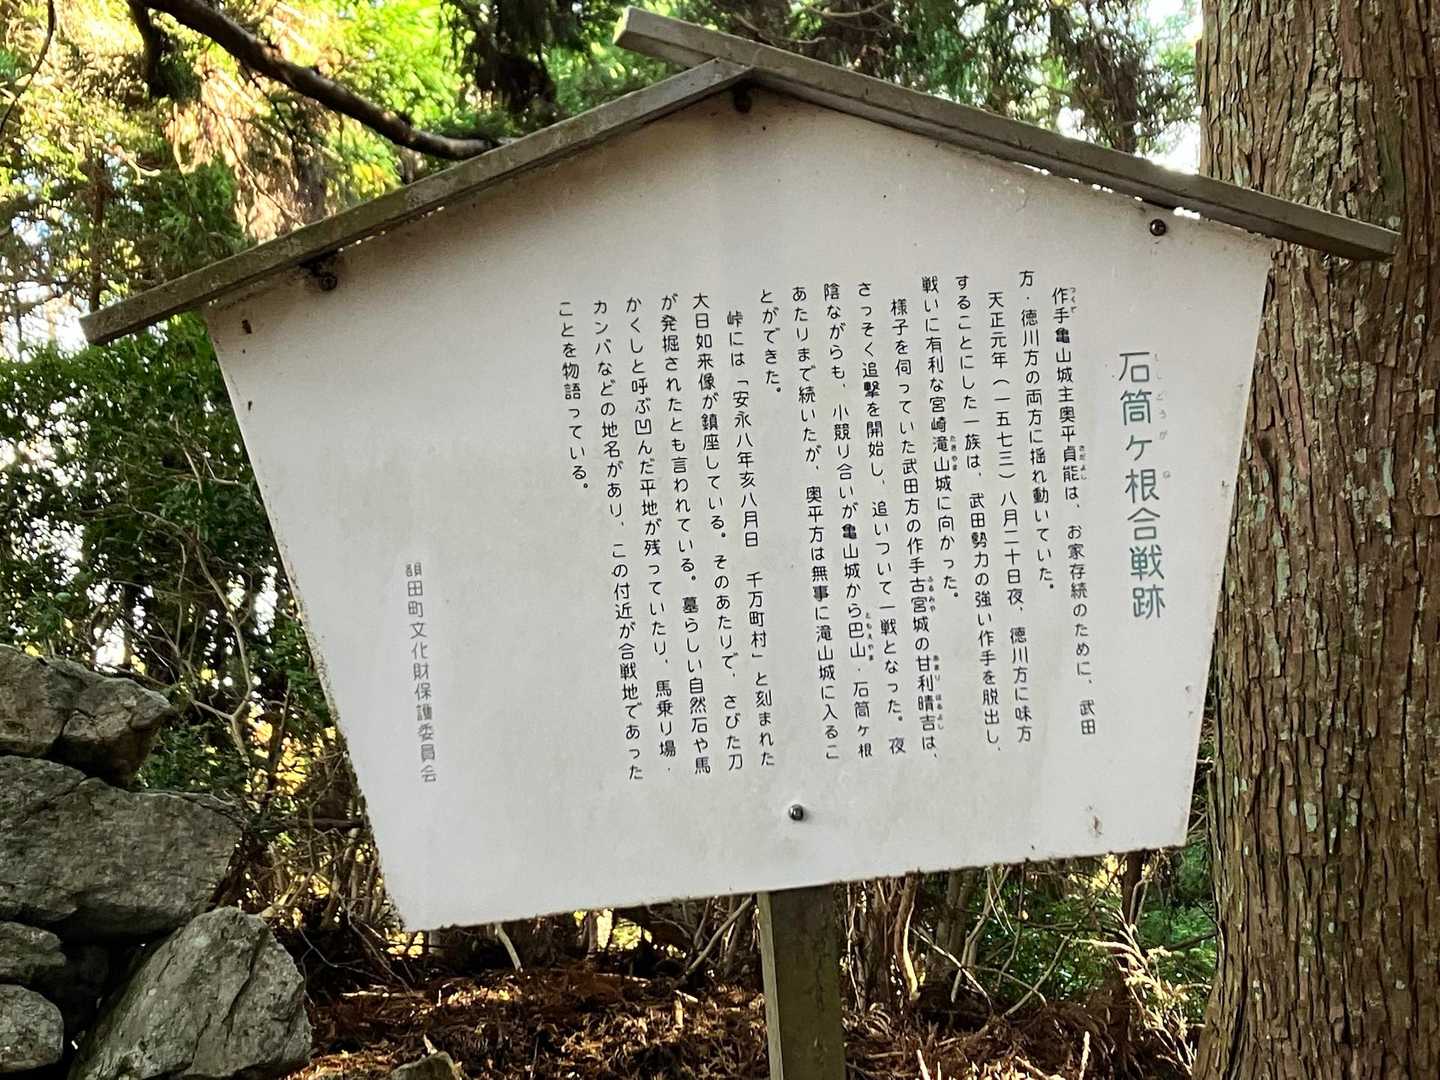 石筒ヶ根合戦跡
作手亀山城主奥平貞能は、お家存続のために、武田
方・徳川方の両方に揺れ動いていた。
天正元年(一五七三)八月二十日夜、徳川方に味方
することにした一族は、武田勢力の強い作手を脱出し、
戦いに有利な宮崎滝山城に向かった。
様子を伺っていた武田方の作手古宮城の甘利晴吉は、
さっそく追撃を開始し、追いついて一戦となった。夜
陰ながらも、小競り合いが亀山城から巴山・石筒ヶ根
あたりまで続いたが、奥平方は無事に滝山城に入るこ
とができた。
峠には「安永八年亥八月日 千万町村」と刻まれた
大日如来像が鎮座している。そのあたりで、さびた刀
が発掘されたとも言われている。墓らしい自然石や馬
かくしと呼ぶ凹んだ平地が残っていたり、馬乗り場・
カンバなどの地名があり、この付近が合戦地であった
ことを物語っている。
額田町文化財保護委員会